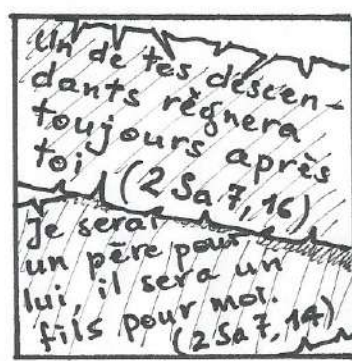 Un de tes descen-
dants règnera
toujours après
toi (2 Sa 7,16)
Je serai
un père pour
lui, il sera un
fils pour moi.
(2 Sa 7,14)